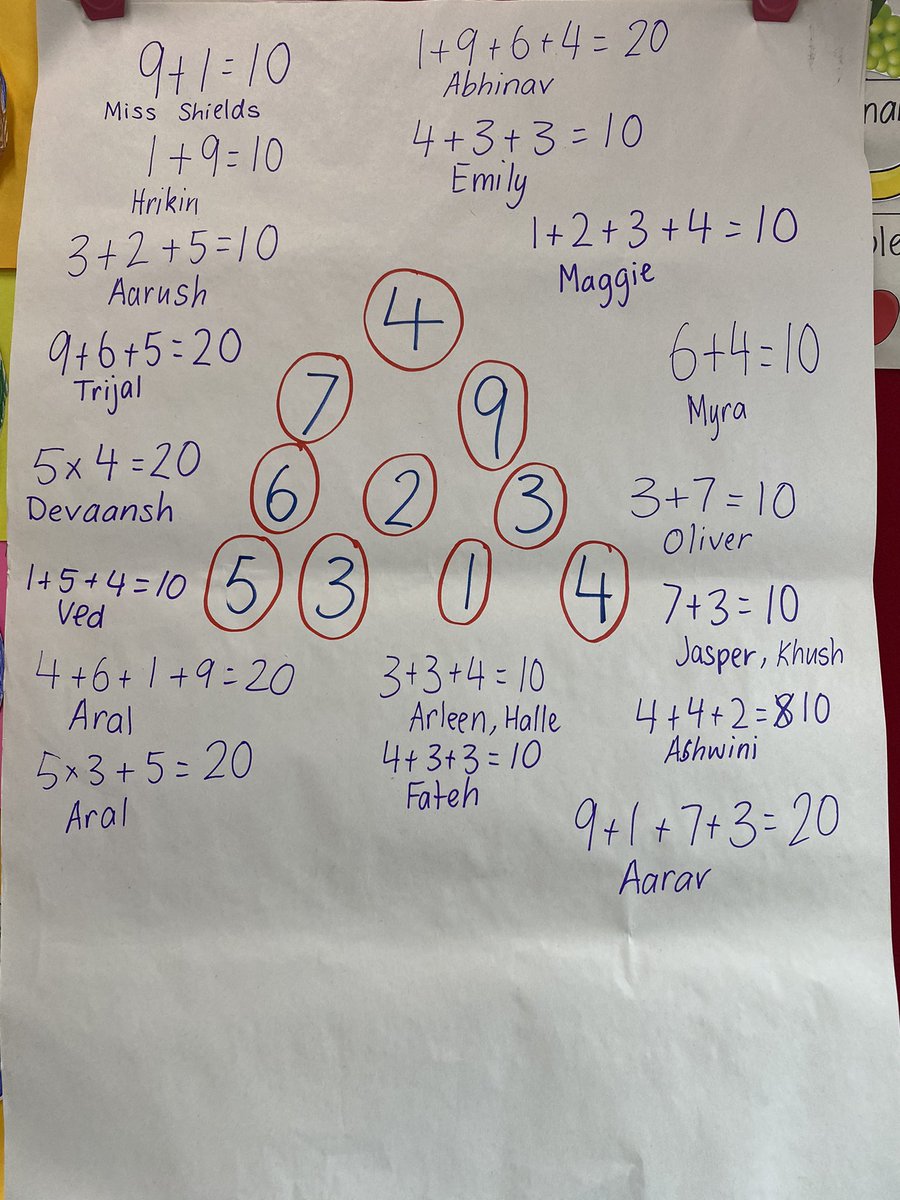 9+1=10
Miss Shields
1+9=10
Hrikin
3+2+5=10
Aarush
9+6+5=20
Trijal
5×4=20
Devaansh
1+5+4=10
Ved
4+6+1+9=20
Aral
5×3+5=20
Aral
1+9+6+4=20
Abhinav
4+3+3=10
Emily
1+2+3+4=10
Maggie
4
7 9
6 2 3
5 3 1 4
3+3+4=10
Arleen, Halle
4+3+3=10
Fateh
6+4=10
Myra
3+7=10
Oliver
7+3=10
Jasper, Khush
4+4+2=10
Ashwini
9+1+7+3=20
Aarav